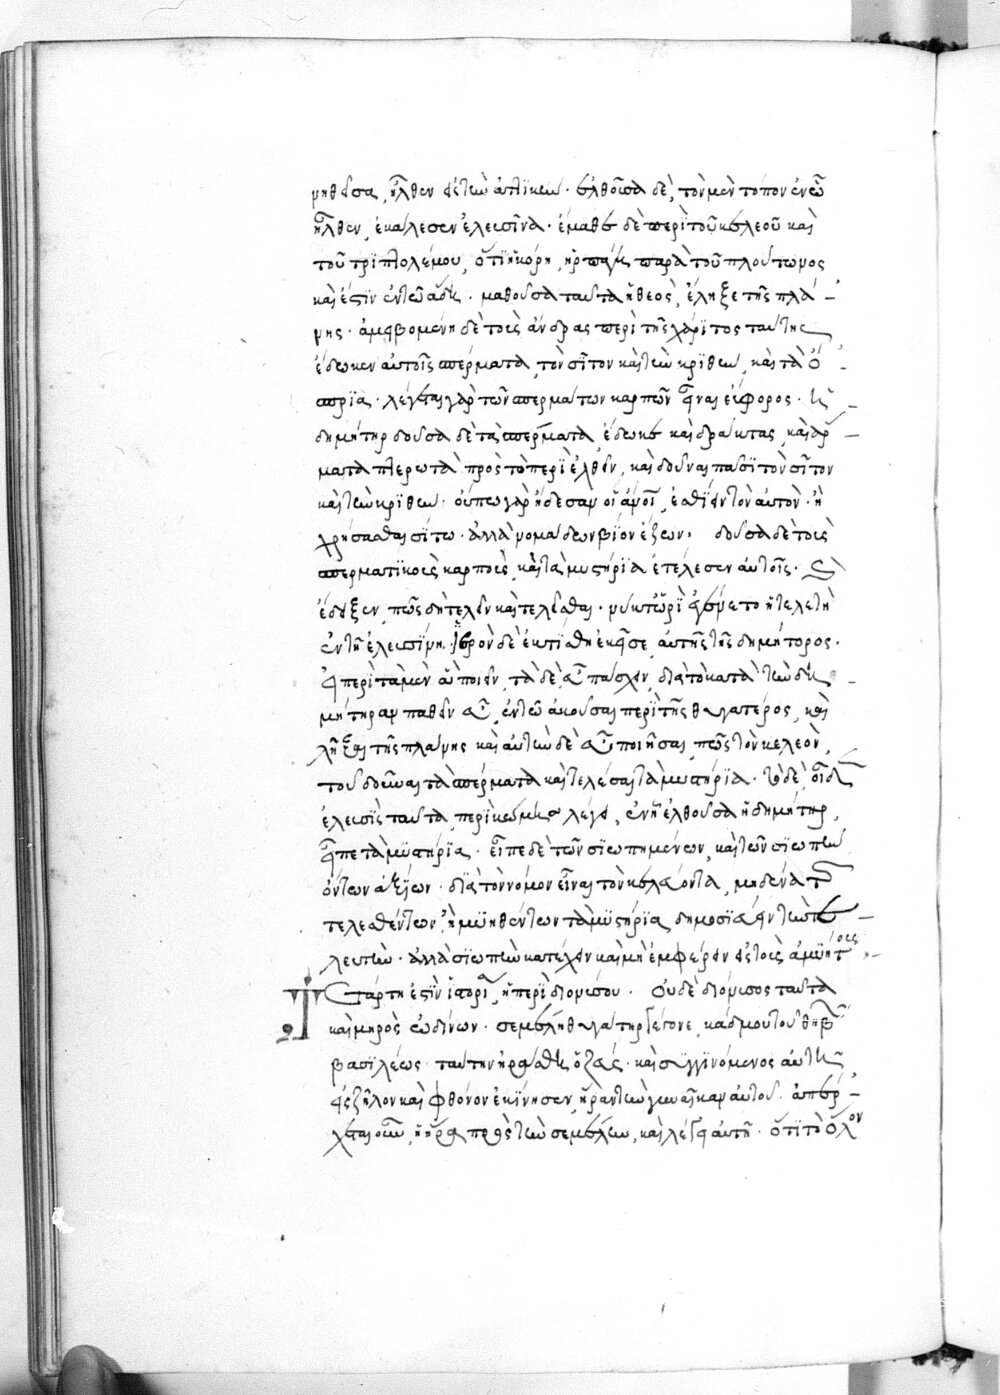 νηθεῖσα, ἦλθεν εἰς τὴν ἀττικὴν. ἐλθοῦσα δὲ, τὸν μὲν τόπον ἐν ᾧ
ἦλθεν, ἐκάλεσεν ἐλευσῖνα. ἔμαθε δὲ περὶ τοῦ κελεοῦ καὶ
τοῦ τριπτολέμου, ὅτι ἡ κόρη, ἡρπάγη παρὰ τοῦ πλούτωνος
καὶ ἔστιν ἐν τῷ ἅδῃ. μαθοῦσα ταῦτα ἡ θεὸς, ἔληξε τῆς πλά-
νης. ἀμειβομένη δὲ τοὺς ἄνδρας περὶ τῆς χάριτος ταύτης
ἔδωκεν αὐτοῖς σπέρματα, τὸν σῖτον καὶ τὴν κριθὴν, καὶ τὰ ὄ-
σπρια. λέγεται γὰρ τῶν σπερμάτων καρπῶν εἶναι ἔφορος. ἡ
δημήτηρ δοῦσα δὲ τὰ σπέρματα, ἔδωκε καὶ δράκοντας, καὶ ἅρ-
ματα πτερωτὰ πρὸς τὸ περιελθεῖν, καὶ δοῦναι πᾶσι τὸν σῖτον
καὶ τὴν κριθὴν. οὔπω γὰρ ᾔδεσαν οἱ ἄνοι, ἐσθίειν τὸν αὐτὸν. ἢ
χρήσασθαι σίτω. ἀλλὰ νομάδων βίον ἔζων. δοῦσα δὲ τοὺς
σπερματικοὺς καρποὺς, καὶ τὰ μυστήρια ἐτέλεσεν αὐτοῖς. καὶ
ἔδειξεν, πῶς δὴ τελεῖν καὶ τελεῖσθαι. νυκτωρὶ ἐγένετο ἡ τελετὴ
ἐν τῇ ἐλευσίνη. ἱερὸν δὲ ἐκτίσθη ἐκεῖσε, αὐτῆς τῆς δημήτορος.
ᾗ περὶ τὰ μὲν αὖ ποιεῖν, τὰ δὲ, αὖ πάσχειν, διὰ τὸ κατὰ τὴν δη-
μήτηραν παθεῖν αὖ, ἐν τῷ ἀκοῦσαι περὶ τῆς θυγατέρος, καὶ
λῆξαι τῆς πλάνης καὶ αὐτὴν δὲ αὖ ποιῆσαι, πῶς τὸν κελεὸν,
τοῦ δοῦναι τὰ σπέρματα καὶ τελέσαι τὰ μυστήρια. τὸ δὲ, οἶδε
ἐλευσὶς ταῦτα, περὶ κώμης λέγει, ἐν ᾗ ἐλθοῦσα ἡ δημήτηρ,
εἶπε τὰ μυστήρια. εἶπε δὲ τῶν σιωπημένων, καὶ τῶν σιωπὴν
ὄντων ἀξίων. διὰ τὸν νόμον εἶναι τὸν κελεύοντα, μηδένα τῶν
τελεσθέντων, ἢ μυηθέντων τὰ μυστήρια, δημοσιεύειν τὴν τε-
λετὴν. ἀλλὰ σιωπὴν κατέχειν καὶ μὴ ἐμφέρειν εἰς τοὺς ἀμυήτους.
Τετάρτη ἐστὶν ἱστορία, ἡ περὶ διονύσου. οὐδὲ διόνυσος ταῦτα
καὶ μηρὸς ὠδίνων. σεμέλη θυγάτηρ γέγονε, κάδμου τοῦ θηβῶν
βασιλέως. ταύτην ἠράσθη ὁ ζεύς. καὶ συγγινόμενος αὐτῇ
εἰς ζῆλον καὶ φθόνον ἐκίνησεν, ἥραν τὴν γυναῖκαν αὐτοῦ. ἀπέρ-
χεται οὖν, ἡ ἥρα πρὸς τὴν σεμέλην, καὶ λέγει αὐτῇ. ὅτι τὸ ὅλον